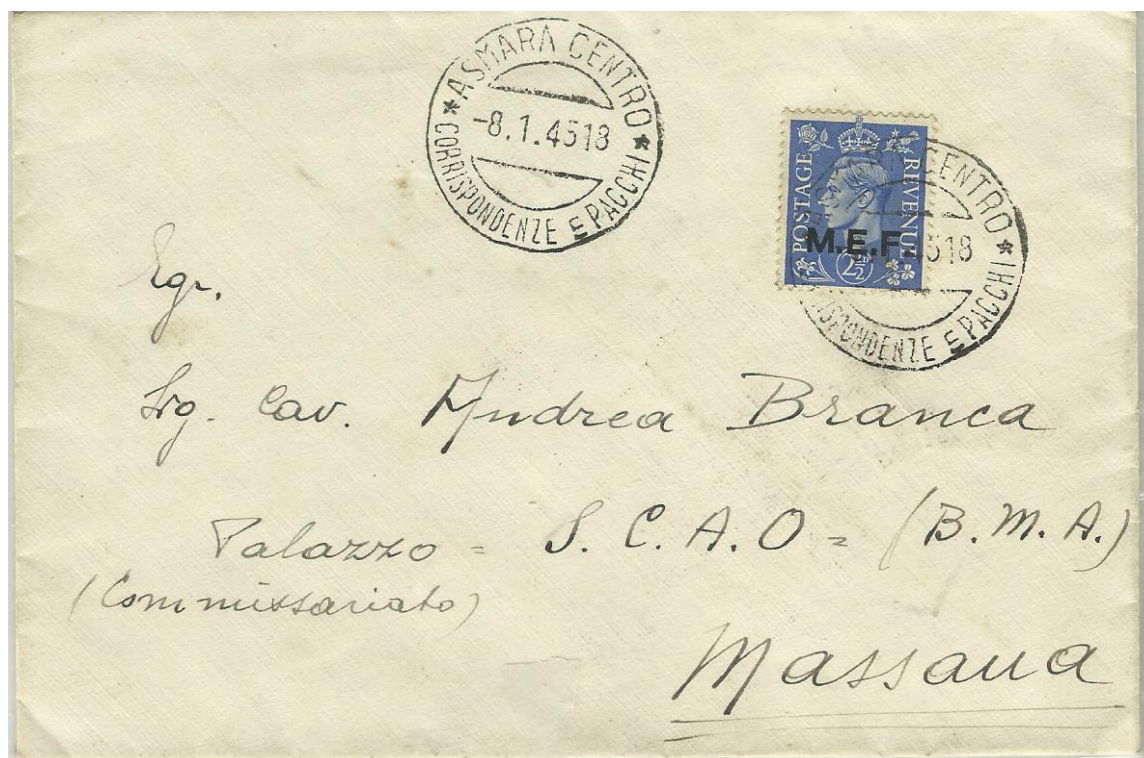 * ASMARA CENTRO *
-8.1.4518
CORRISPONDENZE E PACCHI
POSTAGE REVENUE
M.E.F.
2½D
CENTRO *
4518
RISPONDENZE E PACCHI
Egr.
Sig. Cav. Andrea Branca
Palazzo = S.C.A.O = (B.M.A.)
(Commissariato)
Massaua